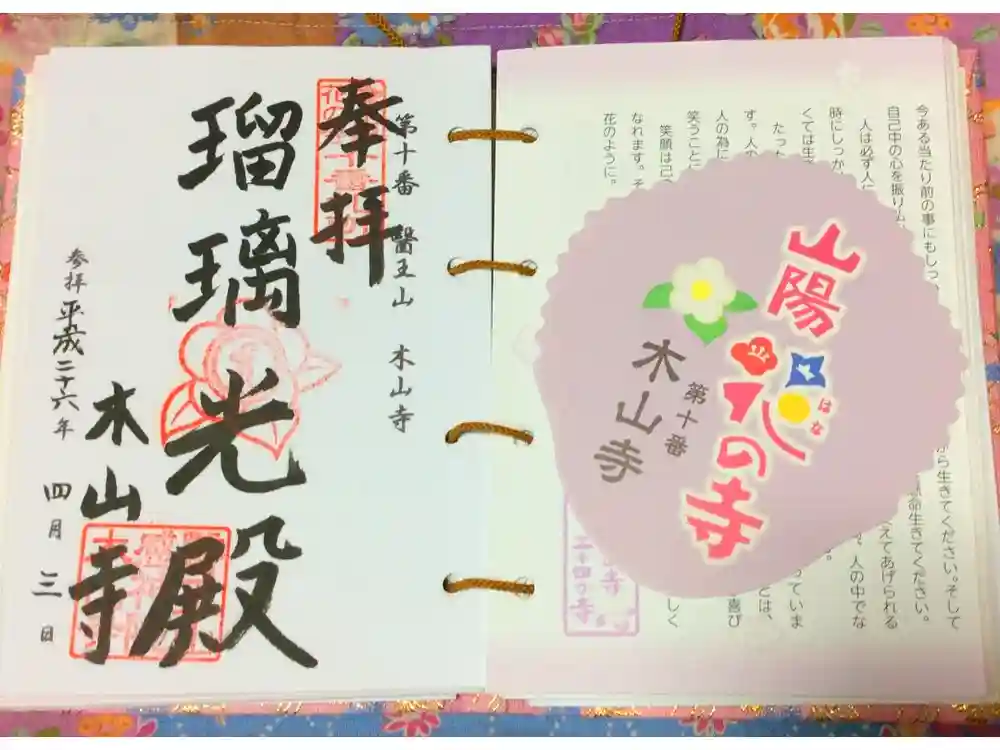 今ある当たり前の事にもしっ
自己中の心を振り
人は必ず人に
時にしっか
くては生
たった
す。人の
人の為に
笑うことに
笑顔は己
なれます。そ
花のように。
から生きてください。そして
命生きてください。
えてあげられる
、人の中でな
っていま
とは、
喜び
しく
山陽
花の寺
はな
第十番
木山寺
二十四か寺
第十番 醫王山 木山寺
奉拝
瑠璃光殿
木山寺
参拝 平成二十六年 四月 三 日